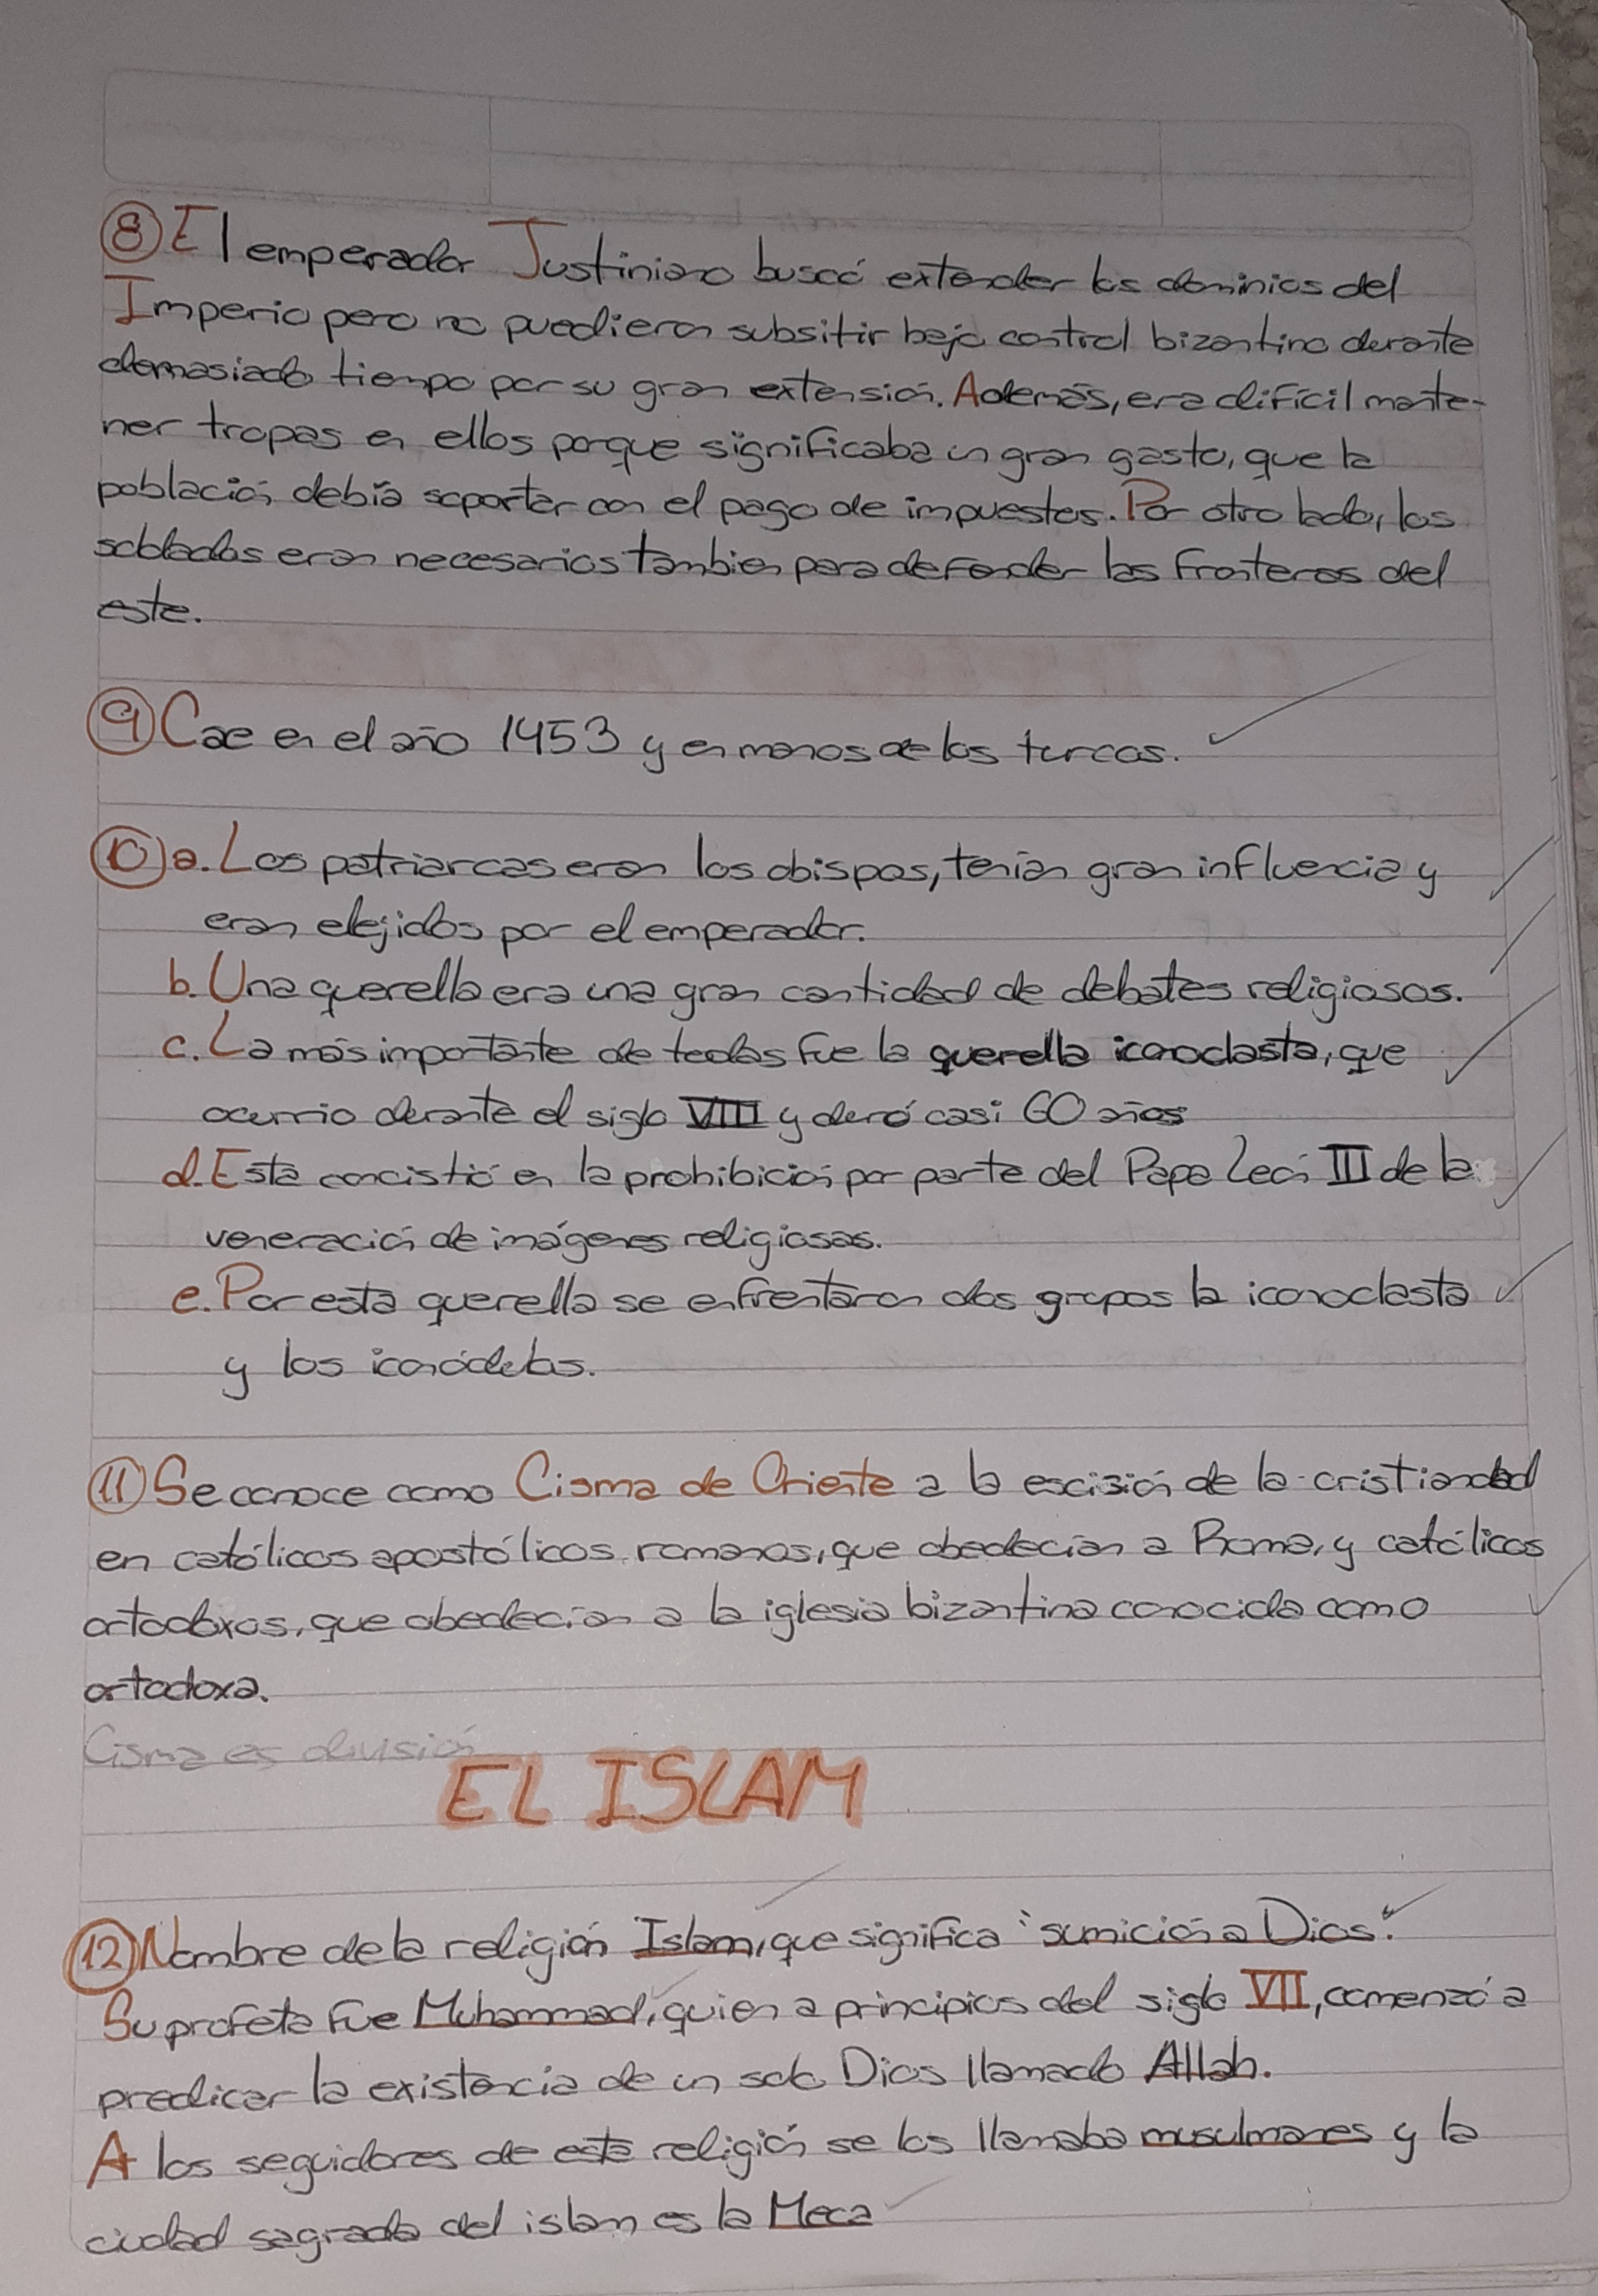 ⑧ El emperador Justiniano buscó extender los dominios del
Imperio pero no puedieron subsitir bajo control bizantino durante
demasiado tiempo por su gran extensión. Además, era difícil mante-
ner tropas en ellos porque significaba un gran gasto, que la
población debía soportar con el pago de impuestos. Por otro lado, los
soldados eran necesarios tambien para defender las fronteras del
este.
⑨ Cae en el año 1453 y en manos de los turcos.
⑩ a. Los patriarcas eran los obispos, tenían gran influencia y
eran elejidos por el emperador.
b. Una querella era una gran cantidad de debates religiosos.
c. La más importante de todas fue la querella iconoclasta, que
ocurrio durante el siglo VIII y duró casi 60 años
d. Esta concistió en la prohibición por parte del Papa León III de la
veneración de imágenes religiosas.
e. Por esta querella se enfrentaron dos grupos la iconoclasta
y los iconódulos.
⑪ Se conoce como Cisma de Oriente a la escisión de la cristiandad
en católicos apostólicos romanos, que obedecían a Roma, y católicos
ortodoxos, que obedecían a la iglesia bizantina conocida como
ortodoxa.
Cisma es división
EL ISLAM
⑫ Nombre de la religión Islam, que significa "sumición a Dios".
Su profeta fue Muhammad, quien a principios del siglo VII, comenzó a
predicar la existencia de un solo Dios llamado Allah.
A los seguidores de esta religión se los llamaba musulmanes y la
ciudad sagrada del islam es la Meca